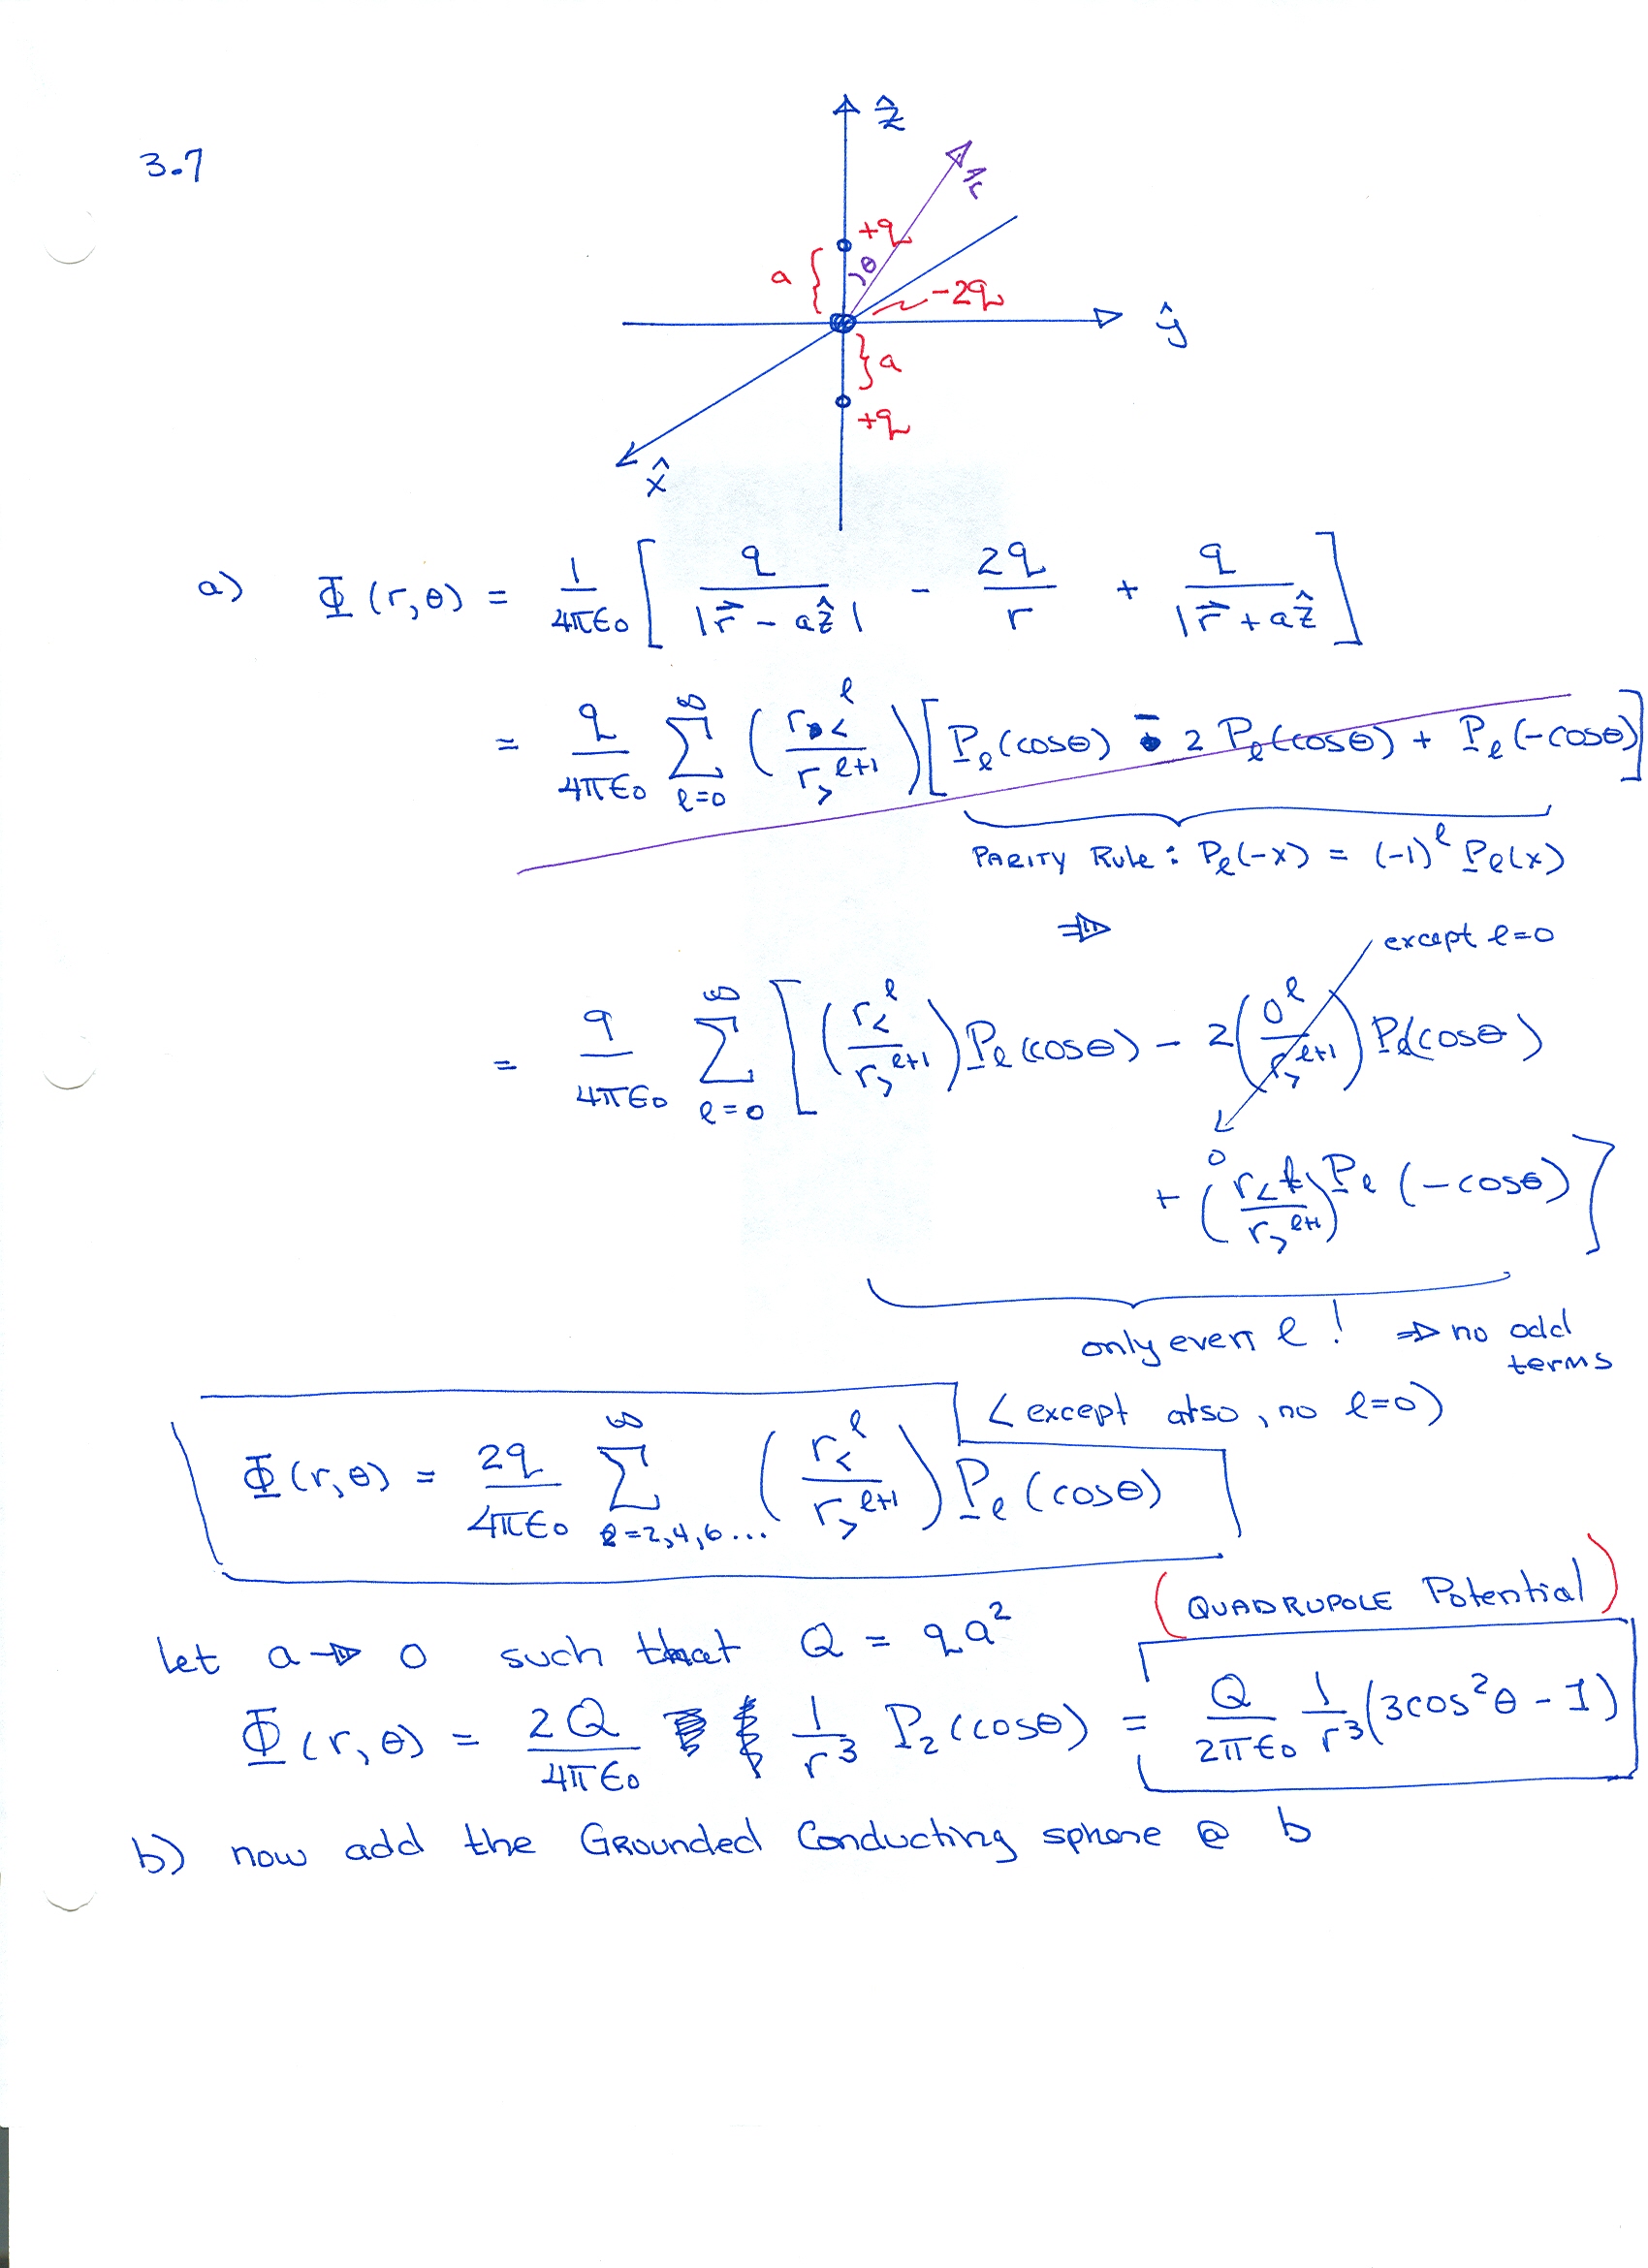 3.7
ẑ
r̂
+q
θ
a {
-2q
ŷ
} a
+q
x̂
a) Φ(r,θ) = 1/4πε₀ [ q/|r⃗ - aẑ| - 2q/r + q/|r⃗ + aẑ ]
= q/4πε₀ ∑_{ℓ=0}^{∞} ( r_<^ℓ / r_>^{ℓ+1} ) [ P_ℓ(cosθ) - 2 P_ℓ(cosθ) + P_ℓ(-cosθ) ]
PARITY Rule: P_ℓ(-x) = (-1)^ℓ P_ℓ(x)
⇒
except ℓ=0
= q/4πε₀ ∑_{ℓ=0}^{∞} [ ( r_<^ℓ / r_>^{ℓ+1} ) P_ℓ(cosθ) - 2 ( 0^ℓ / r_>^{ℓ+1} ) P_ℓ(cosθ)
0
+ ( r_<^ℓ / r_>^{ℓ+1} ) P_ℓ (-cosθ) ]
only even ℓ ! ⇒ no odd
terms
(except also, no ℓ=0)
Φ(r,θ) = 2q/4πε₀ ∑_{ℓ=2,4,6...}^{∞} ( r_<^ℓ / r_>^{ℓ+1} ) P_ℓ(cosθ)
(QUADRUPOLE Potential)
Let a → 0 such that Q = qa²
Φ(r,θ) = 2Q/4πε₀ 1/r³ P₂(cosθ) = Q/2πε₀ 1/r³ (3cos²θ - 1)
b) now add the Grounded Conducting sphere @ b